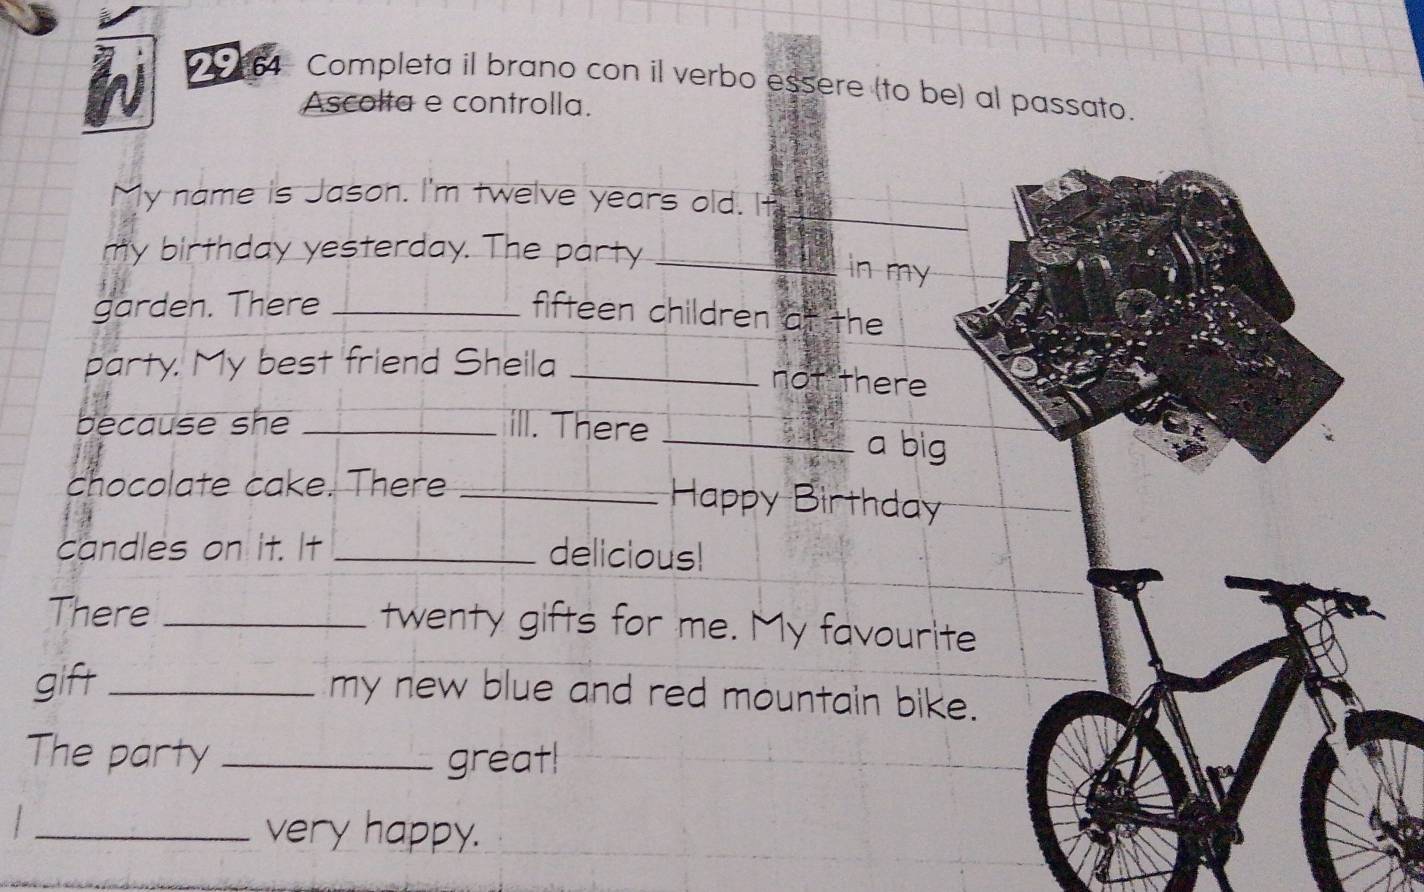 29 64 Completa il brano con il verbo essere (to be) al passato.
Ascolta e controlla.
My name is Jason. I'm twelve years old. It __________
my birthday yesterday. The party __________ in my
garden. There __________ fifteen children at the
party. My best friend Sheila __________ not there
because she __________ ill. There __________ a big
chocolate cake. There __________ Happy Birthday
candles on it. It __________ delicious!
There __________ twenty gifts for me. My favourite
gift __________ my new blue and red mountain bike.
The party __________ great!
I __________ very happy.